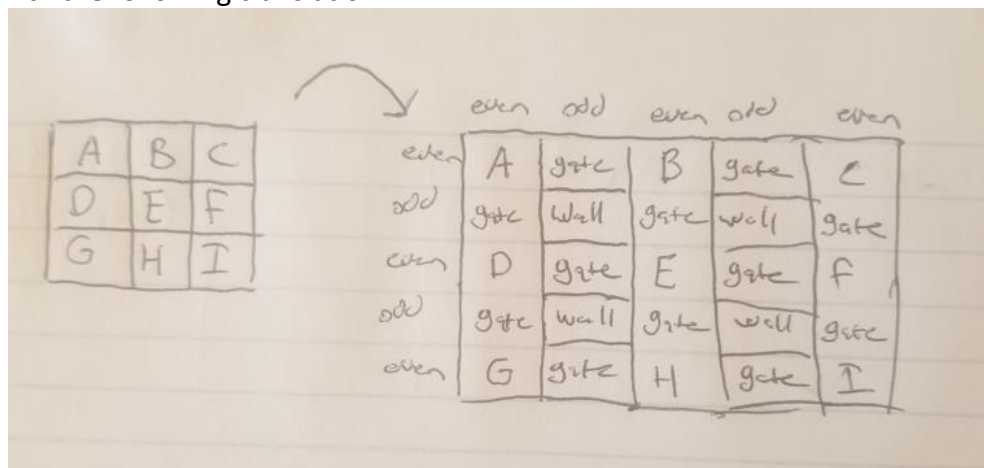 even odd even odd even
A B C
even A gate B gate C
D E F
odd gate wall gate wall gate
G H I
even D gate E gate F
odd gate wall gate wall gate
even G gate H gate I